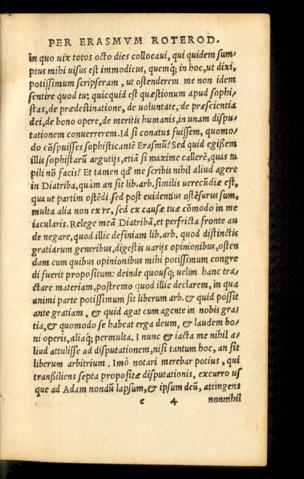 PER ERASMVM ROTEROD.
in quo uix totos octo dies collocaui, qui quidem sum
ptus mihi uisus est immodicus, quemq́; in hoc, ut dixi,
potissimum scripseram, ut ostenderem me non idem
sentire quod tu: quicquid est quæstionum apud sophi
stas, de prædestinatione, de uoluntate, de præscientia
dei, de bono opere, de meritis humanis, in unam dispu
tationem conuerrerem. Id si conatus fuissem, quomo/
do cōspuisses sophisticantē Erasmū? Sed quid egissem
illis sophistarū argutijs, etiā si maxime callerē, quas tu
pili nō facis? Et tamen qd' me scribis nihil aliud agere
in Diatriba, quàm an sit lib. arb. similis uerecūdiæ est,
qua ut partim ostēdi, sed post euidentius ostēsurus sum,
multa alia non ex re, sed ex causæ tuæ cōmodo in me
iacularis. Relege meā Diatribā, et perfricta fronte au
de negare, quod illic definiam lib. arb. quod distinctis
gratiarum generibus, digestis uarijs opinionibus, osten
dam cum quibus opinionibus mihi potissimum congre
di fuerit propositum: deinde quousq́; uelim hanc tra/
ctare materiam, postremo quod illic declarem, in qua
animi parte potissimum sit liberum arb. & quid possit
ante gratiam, & quid agat cum agente in nobis gra/
tia, & quomodo se habeat erga deum, & laudem bo/
ni operis, aliaq́; permulta. I nunc & iacta me nihil a/
liud attulisse ad disputationem, nisi tantum hoc, an sit
liberum arbitrium. Imò notari merebar potius, qui
transiliens septa propositæ disputationis, excurro us
que ad Adam nondū lapsum, & ipsum deū, attingens
c 4 nonnihil